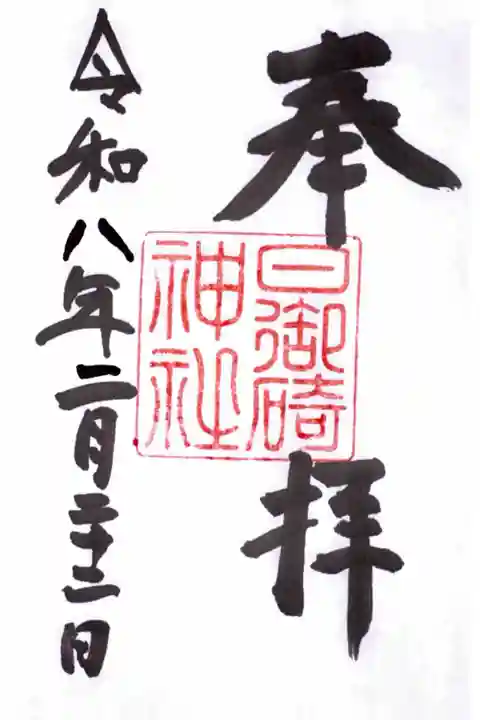 奉拝
日御碕
神社
令和八年二月二十二日